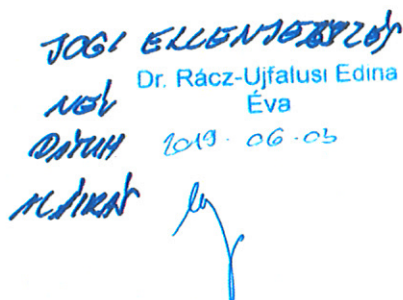 JOGI ELLENJEGYZÉS
NÉV Dr. Rácz-Ujfalusi Edina
Éva
DÁTUM 2019-06-03
ALÁÍRÁS